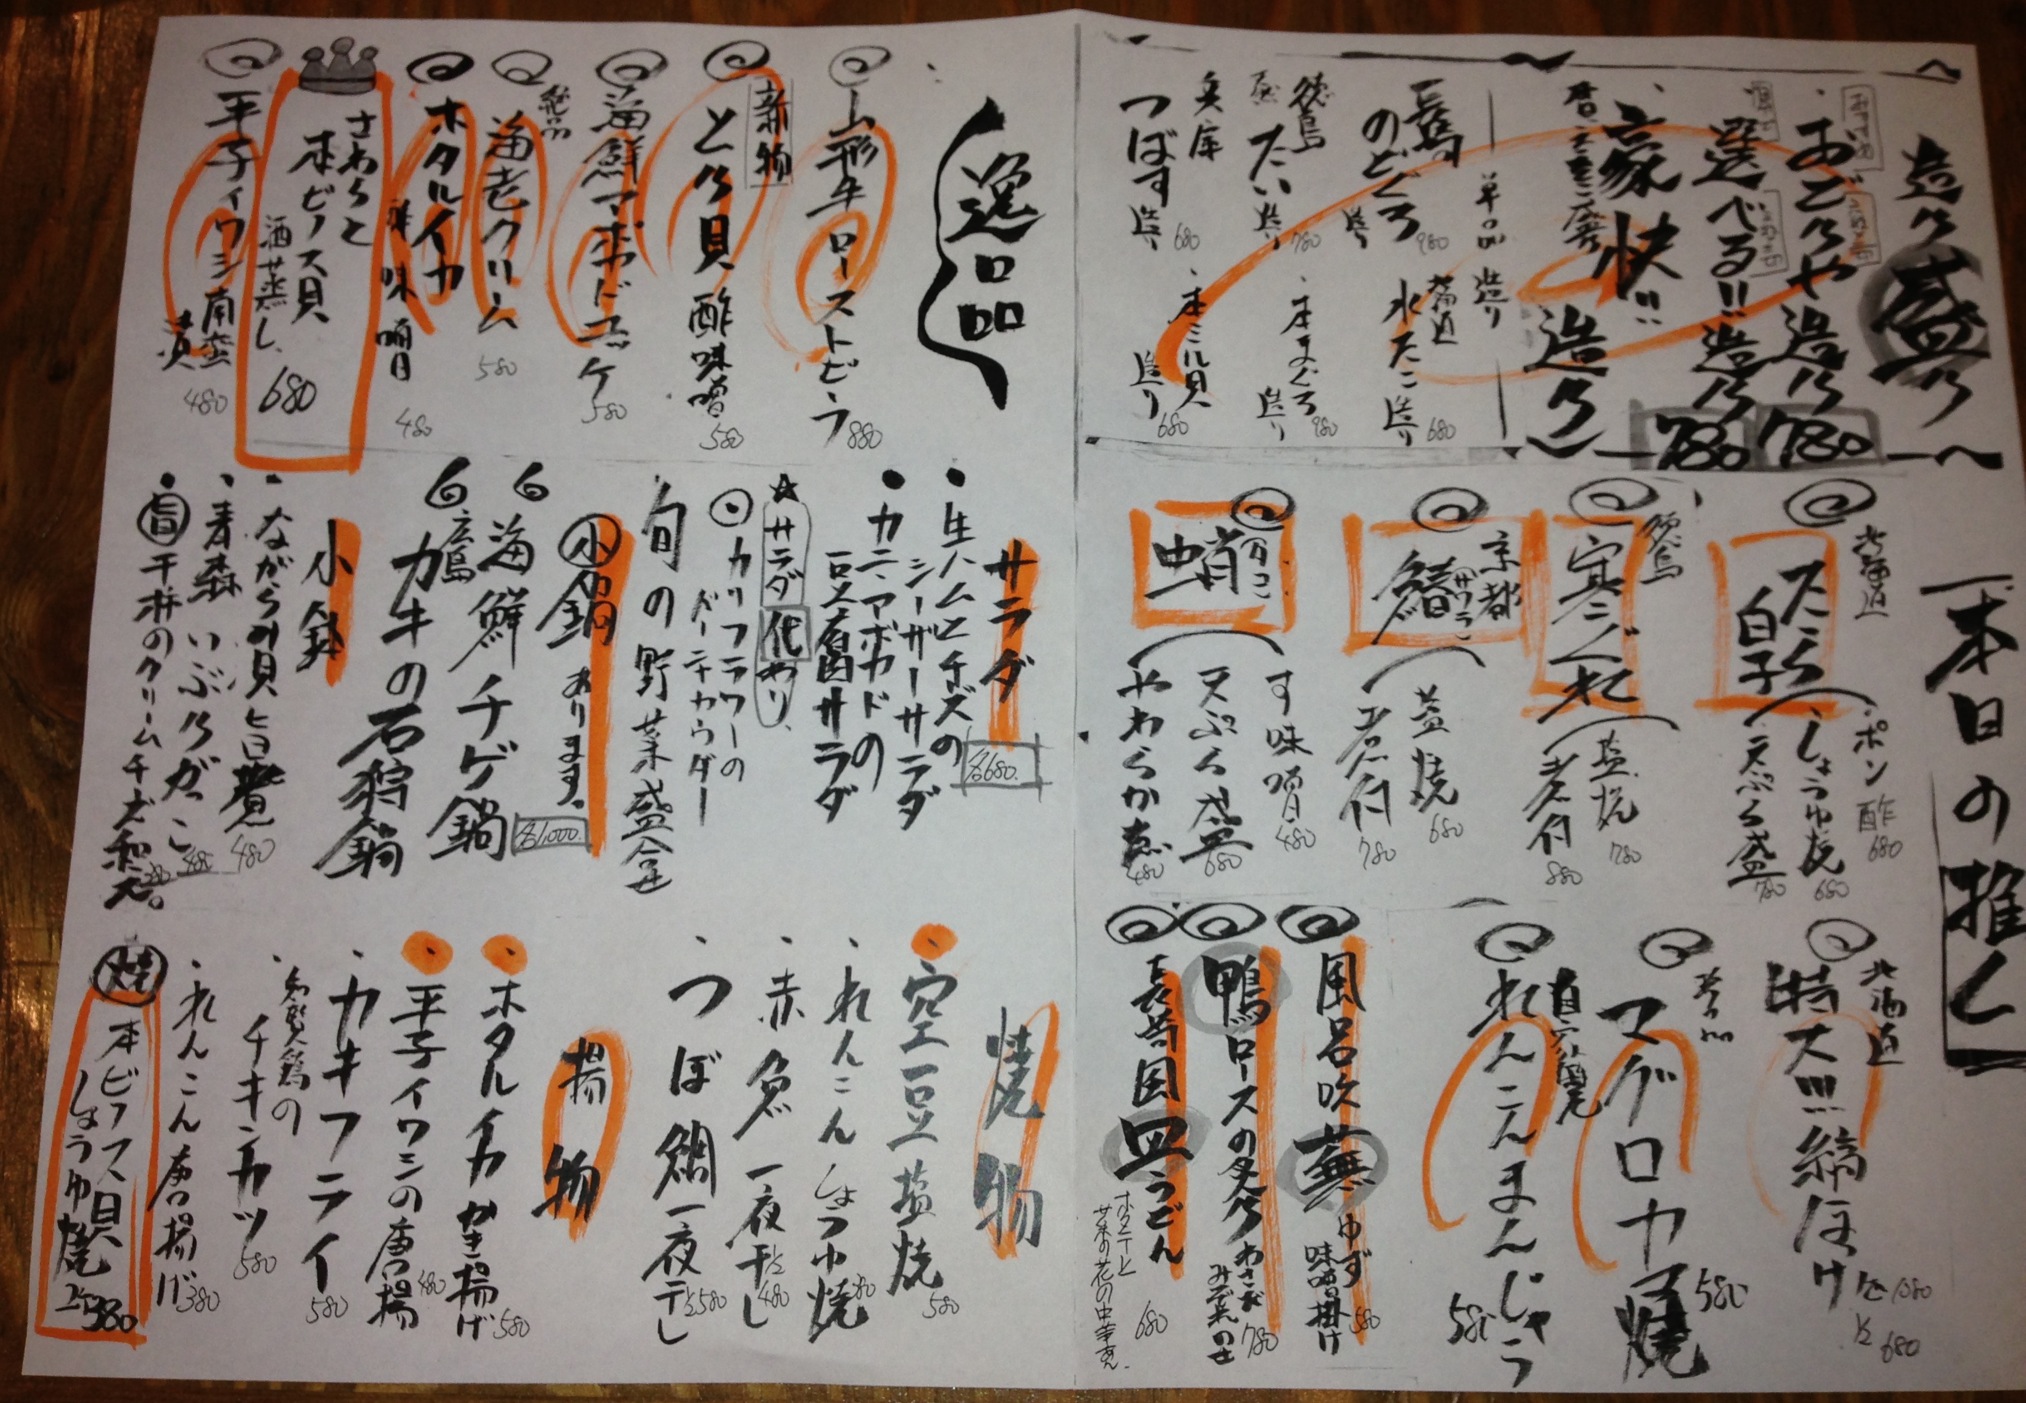 造り盛り
おどりや造り
780
選べる!!造り
780
豪快!!
造り
単品造り
のどぐろ
造り
980
水たこ
造り
680
徳島
たい
造り
780
本まぐろ
造り
980
兵庫
つばす
造り
680
本ミル貝
造り
680
逸品
山形牛ローストビーフ
880
新物
とり貝酢味噌
580
海鮮マーボードユッケ
580
絶品
海老クリーム
580
ホタルイカ
酢味噌
480
さわらと
本ビノス貝
酒蒸し
680
平子イワシ南蛮漬
480
本日の推し
北海道
たら白子
ポン酢
680
しょうゆ焼
680
天ぷら盛
780
徳島
寒ぐれ
塩焼
780
煮付
880
京都
(サワラ)
鰆
塩焼
680
煮付
780
蛸
す味噌
480
天ぷら盛
680
やわらか煮
480
サラダ
各680
・生ハムとチーズの
シーザーサラダ
・カニ、アボカドの
豆腐サラダ
☆サラダ代わり
カリフラワーの
バーニャカウダー
旬の野菜盛合せ
小鍋あります。
各1,000
海鮮チゲ鍋
広島
カキの石狩鍋
小鉢
・ながらみ貝旨煮
480
・青森いぶりがっこ
・干柿のクリームチーズ和え。
北海道
特大!!!縞ほっけ
1080
1/2 680
マグロカマ焼
580
自家製
れんこんまんじゅう
580
風呂吹蕪
ゆず味噌掛け
580
鴨ロースの炙り
わさび
780
長崎風皿うどん
680
焼物
空豆塩焼
580
・れんこんしょうゆ焼
・赤魚一夜干し
1/2 480
・つぼ鯛一夜干し
1/2 580
揚物
・ホタルイカかき揚げ
580
・平子イワシの唐揚
480
・カキフライ
580
・チキンカツ
580
・れんこん唐揚げ
380
焼
本ビノス貝
しょうゆ焼
2ケ380